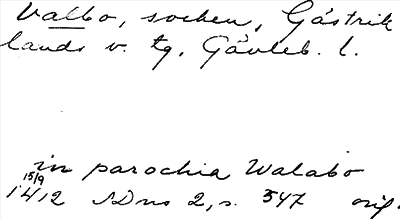 Valbo, socken, Gästrik
lands v. tg, Gävleb. l.
in parochia Walabo
15/9
1412 SDns 2, s. 547 orig.